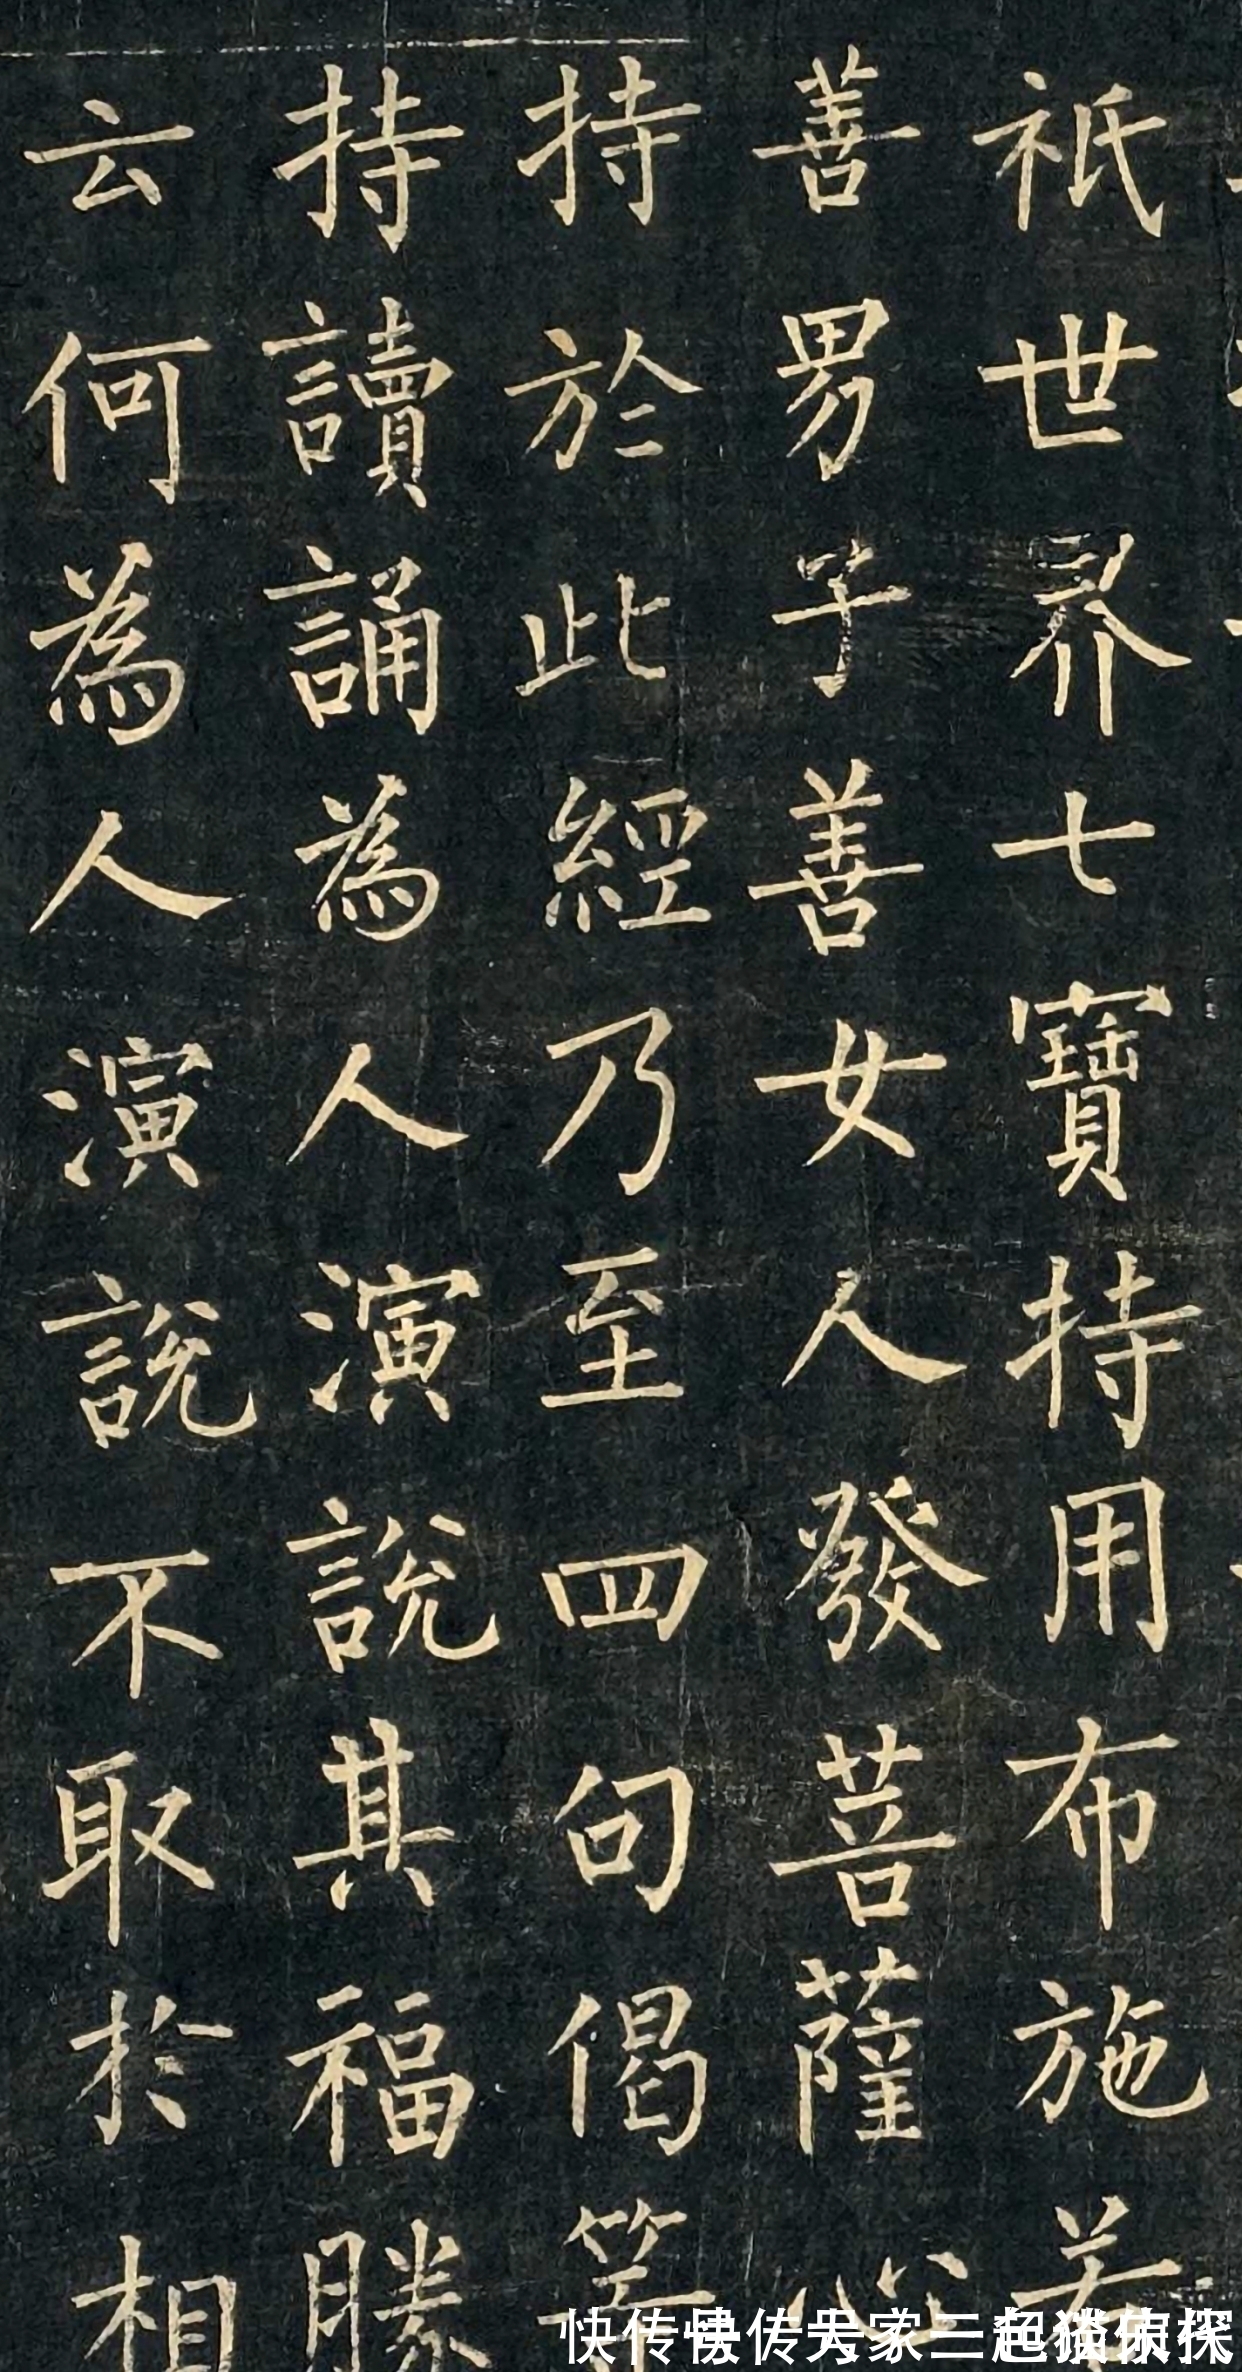 祇世界七寶持用布施若
善男子善女人發菩薩心
持於此經乃至四句偈等
持讀誦為人演說其福勝
云何為人演說不取於相
快传号